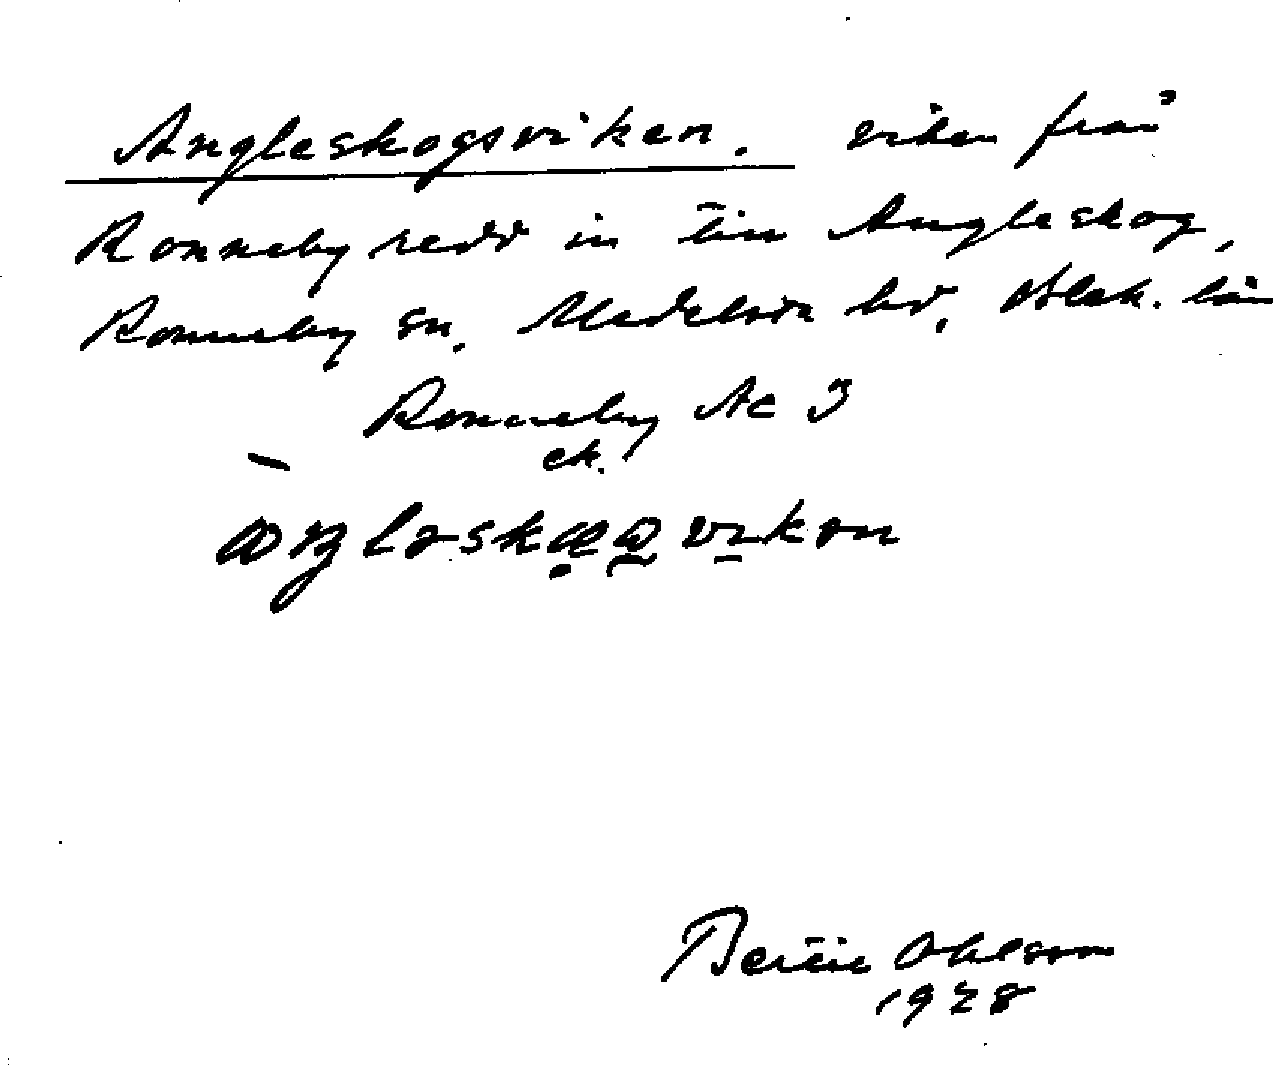 Angleskogsviken. viken från
Ronneby redd in till Angleskog,
Ronneby sn, Medelsta hd, Blek. län
Ronneby Ac 3
ek.
Bertil Ohlsson
1928